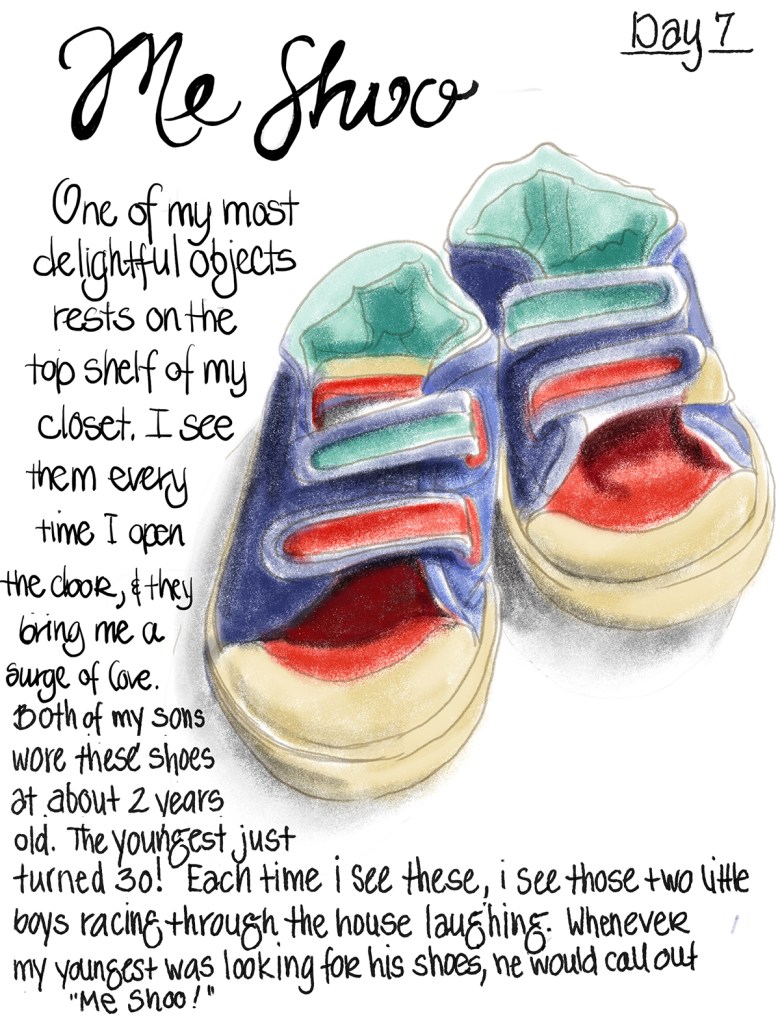 Day 7
Me Shoo
One of my most
delightful objects
rests on the
top shelf of my
closet. I see
them every
time I open
the door, & they
bring me a
surge of love.
Both of my sons
wore these shoes
at about 2 years
old. The youngest just
turned 30! Each time i see these, i see those two little
boys racing through the house laughing. Whenever
my youngest was looking for his shoes, he would call out
"Me Shoo!"